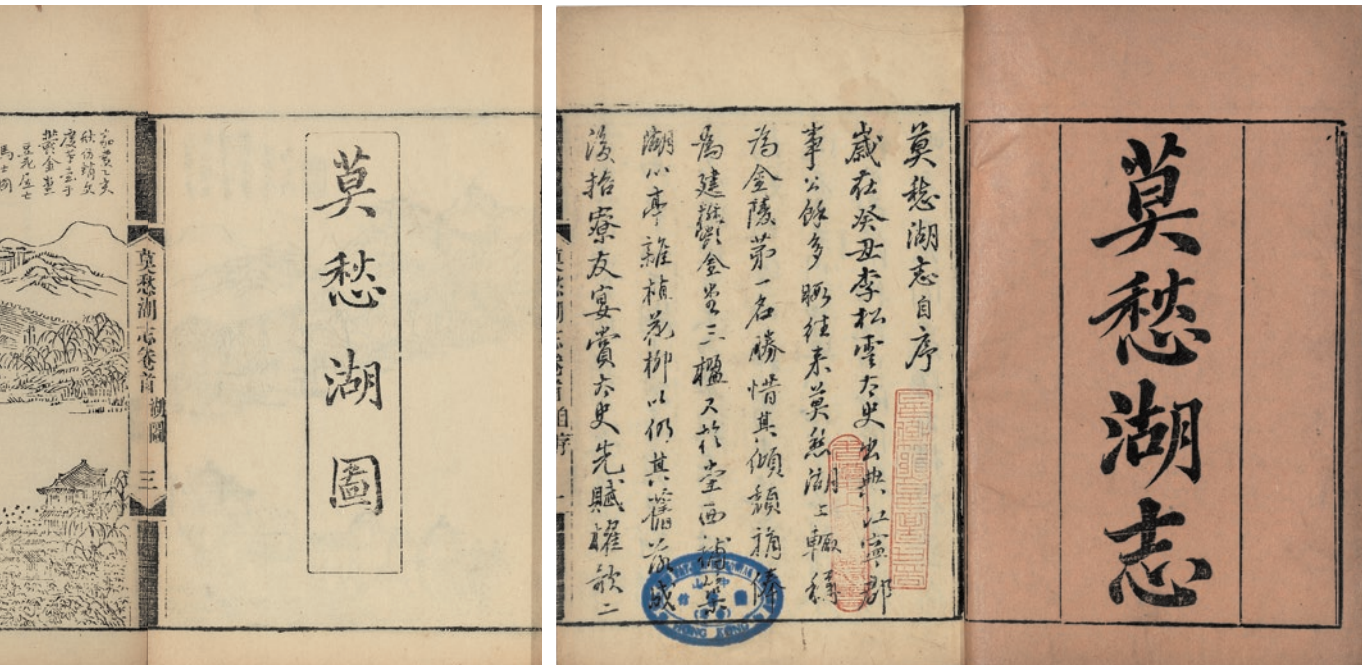 莫愁湖志
莫愁湖志自序
歲在癸丑李松雲太史出典江寧郡
事公餘多暇往來莫愁湖上輒稱
為金陵第一名勝惜其傾頹捐俸
為建鬱金堂三楹又於堂西補築
湖心亭雜植花柳以仍其舊落成
後招寮友宴賞太史先賦櫂歌二
莫愁湖志卷首自序 一
HONG KONG
莫愁湖圖
莫愁湖志卷首 湖圖 三
嘉慶乙亥
鬱金堂
豆花居士
馬士圖